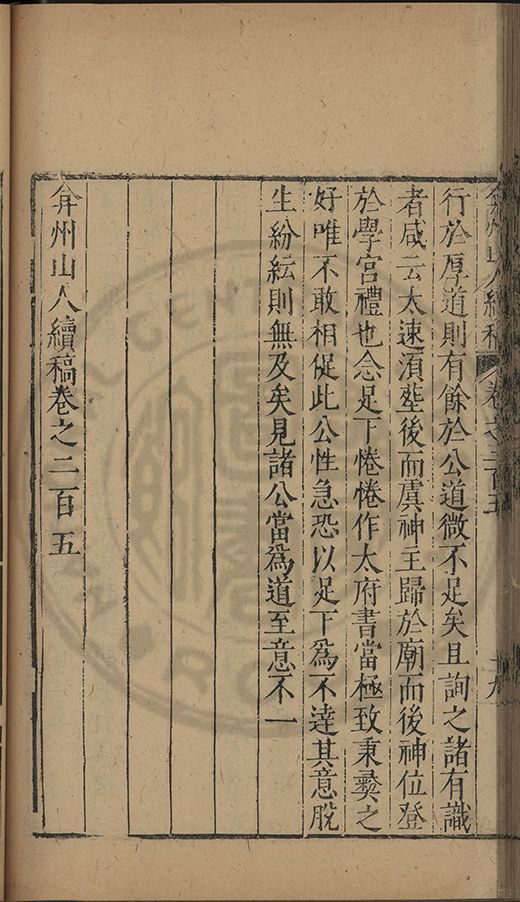 弇州山人續稿 卷之二百五 十九
行於厚道則有餘於公道微不足矣且詢之諸有識
者咸云太速須塟後而虞神主歸於廟而後神位登
於學宮禮也念足下惓惓作太府書當極致秉彜之
好唯不敢相促此公性急恐以足下爲不達其意脫
生紛紜則無及矣見諸公當爲道至意不一
弇州山人續稿卷之二百五